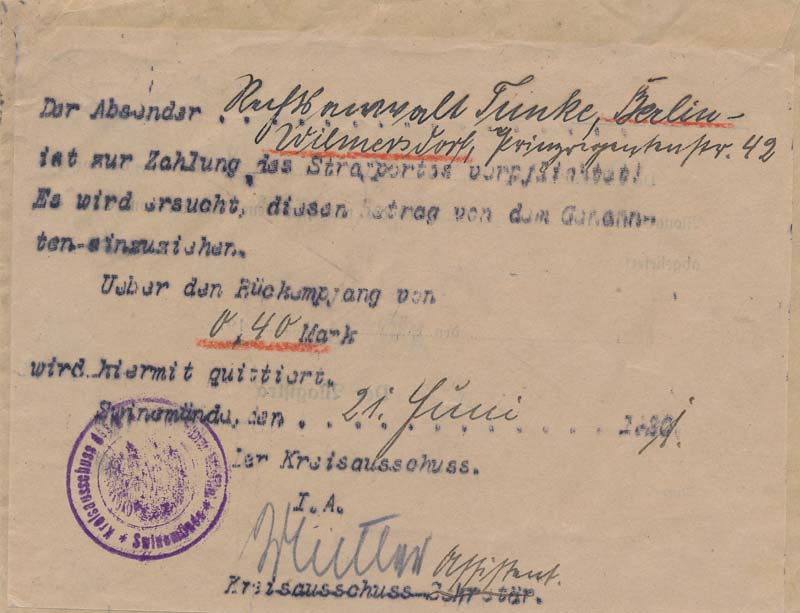 Der Absender . . Rechtsanwalt Tunke, Berlin-
Wilmersdorf, Prinzregentenstr. 42
ist zur Zahlung des Strafportos verpflichtet!
Es wird ersucht, diesen Betrag von dem Genann-
ten einzuziehen.
Ueber den Rückempfang von
0,40 Mark
wird hiermit quittiert.
Swinemünde, den . . 21. Juni . . . . . .
Der Kreisausschuss.
I.A.
Assistent.
Kreisausschuss-Sekretär.
* Kreisausschuss des
* Swinemünde *